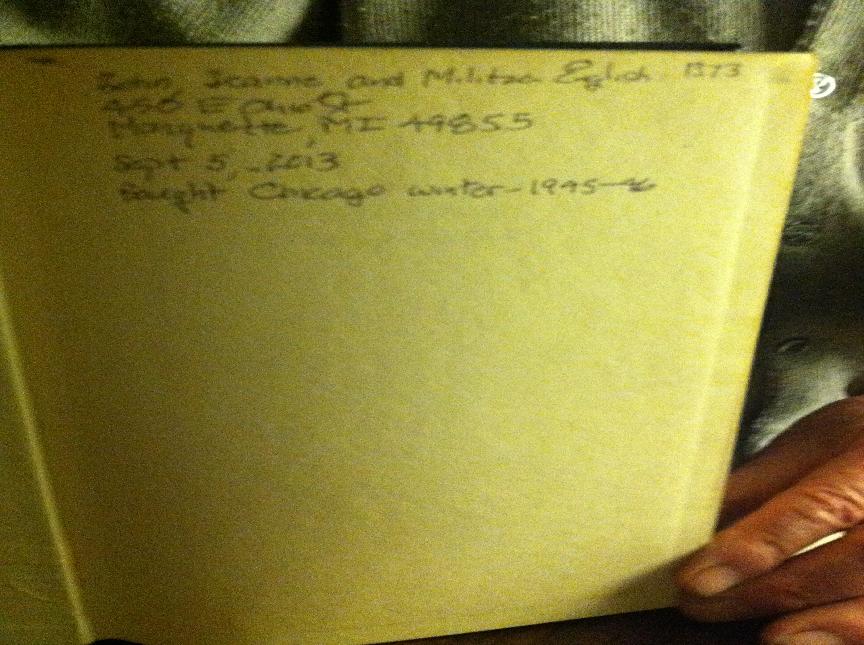 John, Jeanne, and Militza English 1373
Marquette, MI 49855
Sept 5, 2013
Bought Chicago winter-1945-46